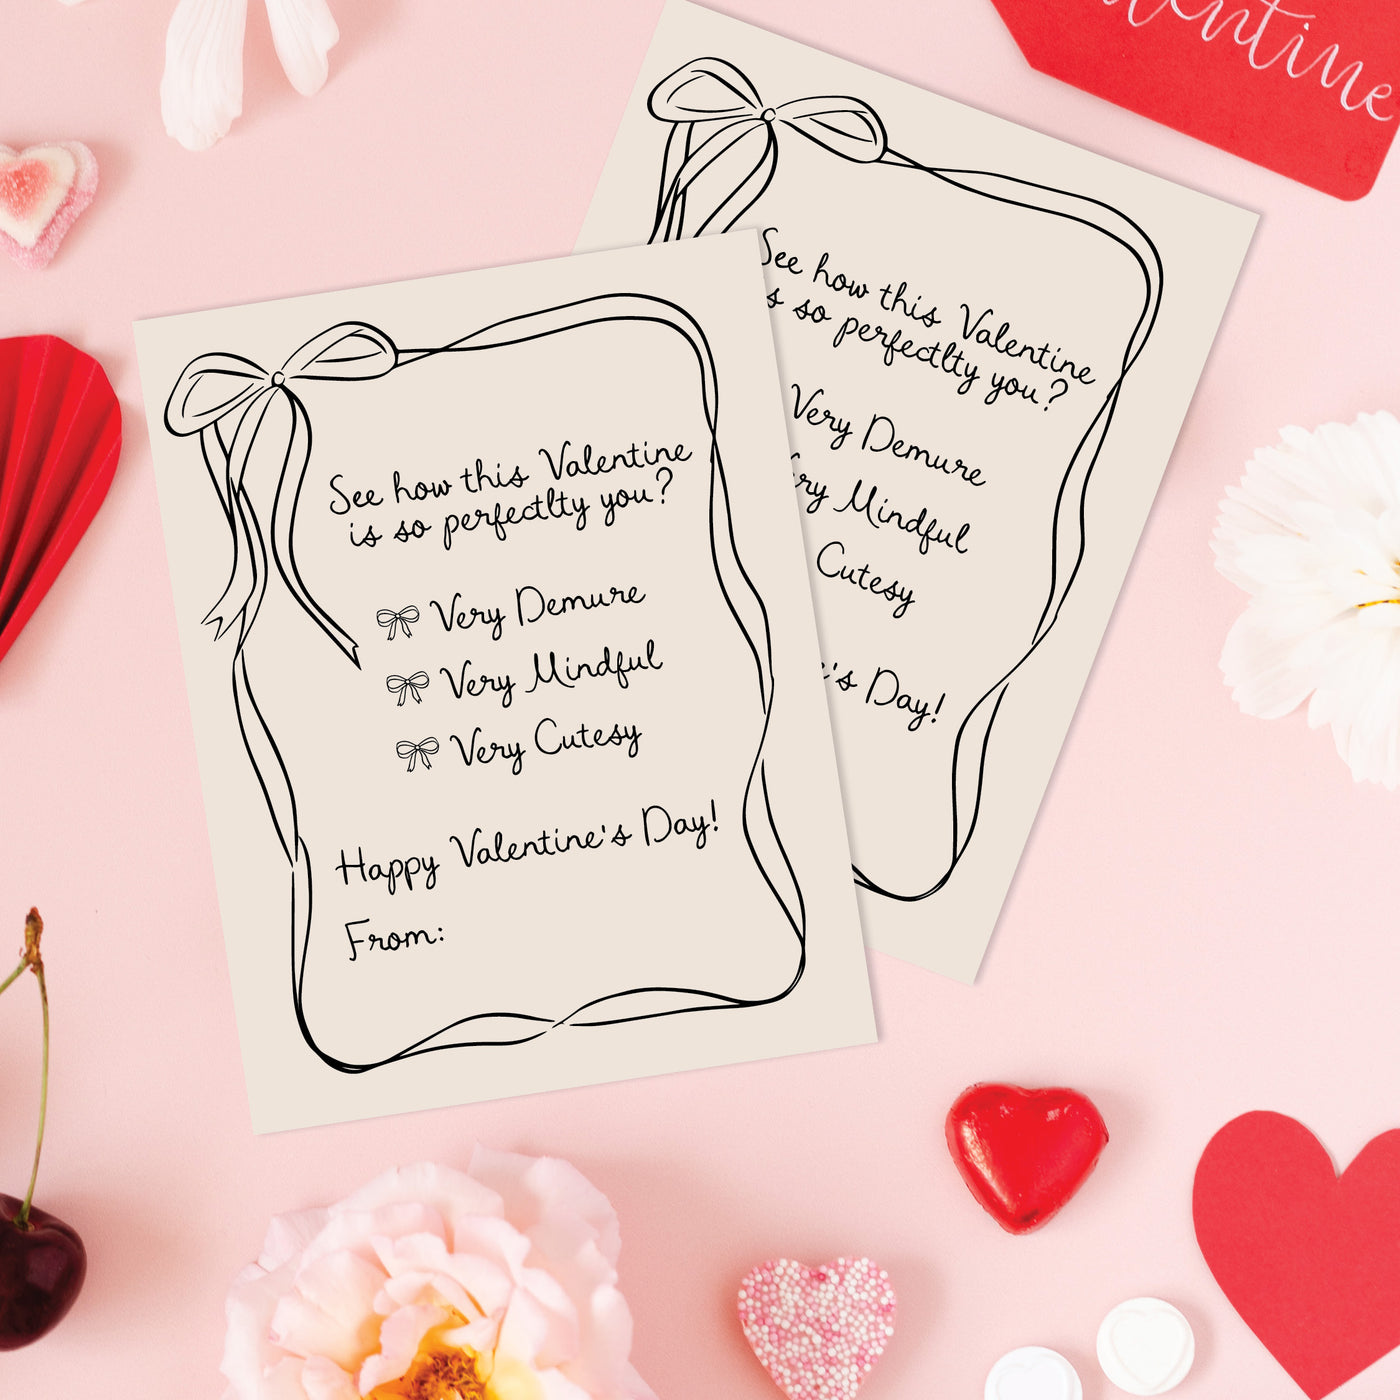 See how this Valentine
is so perfectlty you?
Very Demure
Very Mindful
Very Cutesy
Happy Valentine's Day!
From:
See how this Valentine
s so perfectlty you?
Very Demure
ry Mindful
Cutesy
's Day!
entine